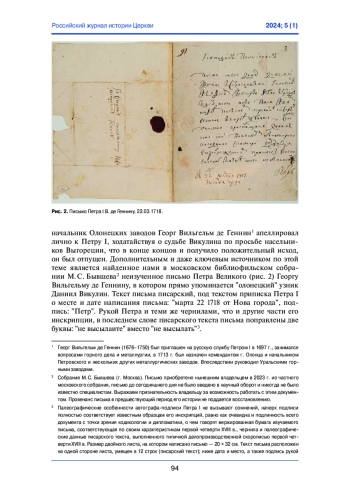 Российский журнал истории Церкви
2024; 5 (1)
Рис. 2. Письмо Петра I В. де Геннину. 22.03.1718.
начальник Олонецких заводов Георг Вильгельм де Геннин¹ апеллировал
лично к Петру I, ходатайствуя о судьбе Викулина по просьбе насельни-
ков Выгореции, что в конце концов и получило положительный исход,
он был отпущен. Дополнительным и даже ключевым источником по этой
теме является найденное нами в московском библиофильском собра-
нии М. С. Бывшева² неизученное письмо Петра Великого (рис. 2) Георгу
Вильгельму де Геннину, в котором прямо упоминается "олонецкий" узник
Даниил Викулин. Текст письма писарский, под текстом приписка Петра I
о месте и дате написания письма: "марта 22 1718 от Нова города", под-
пись: "Петр". Рукой Петра и теми же чернилами, что и другие части его
инскрипции, в последнем слове писарского текста письма поправлены две
буквы: "не высылаите" вместо "не высылать"³.
¹ Георг Вильгельм де Геннин (1676–1750) был приглашен на русскую службу Петром I в 1697 г., занимался
вопросами горного дела и металлургии, в 1713 г. был назначен комендантом г. Олонца и начальником
Петровского и нескольких других металлургических заводов. Впоследствии руководил Уральскими гор-
ными заводами.
² Собрание М. С. Бывшева (г. Москва). Письмо приобретено нынешним владельцем в 2023 г. из частного
московского собрания, письмо до сегодняшнего дня не было введено в научный оборот и никогда не было
известно специалистам. Выражаем признательность владельцу за возможность работать с этим докумен-
том. Провенанс письма в предшествующий период его истории не поддается восстановлению.
³ Палеографические особенности автографа-подписи Петра I не вызывают сомнений, начерк подписи
полностью соответствует известным образцам его инскрипций, равно как очевидна и подлинность всего
документа с точки зрения кодикологии и дипломатики, о чем говорит вержированная бумага изучаемого
письма, соответствующая по своим характеристикам первой четверти XVIII в., чернила и палеографиче-
ские данные писарского текста, выполненного типичной делопроизводственной скорописью первой чет-
верти XVIII в. Размер двойного листа, на котором написано письмо — 20 × 32 см. Текст письма расположен
на одной стороне листа, умещен в 12 строк (писарский текст); ниже дата и место, а также подпись рукой
94